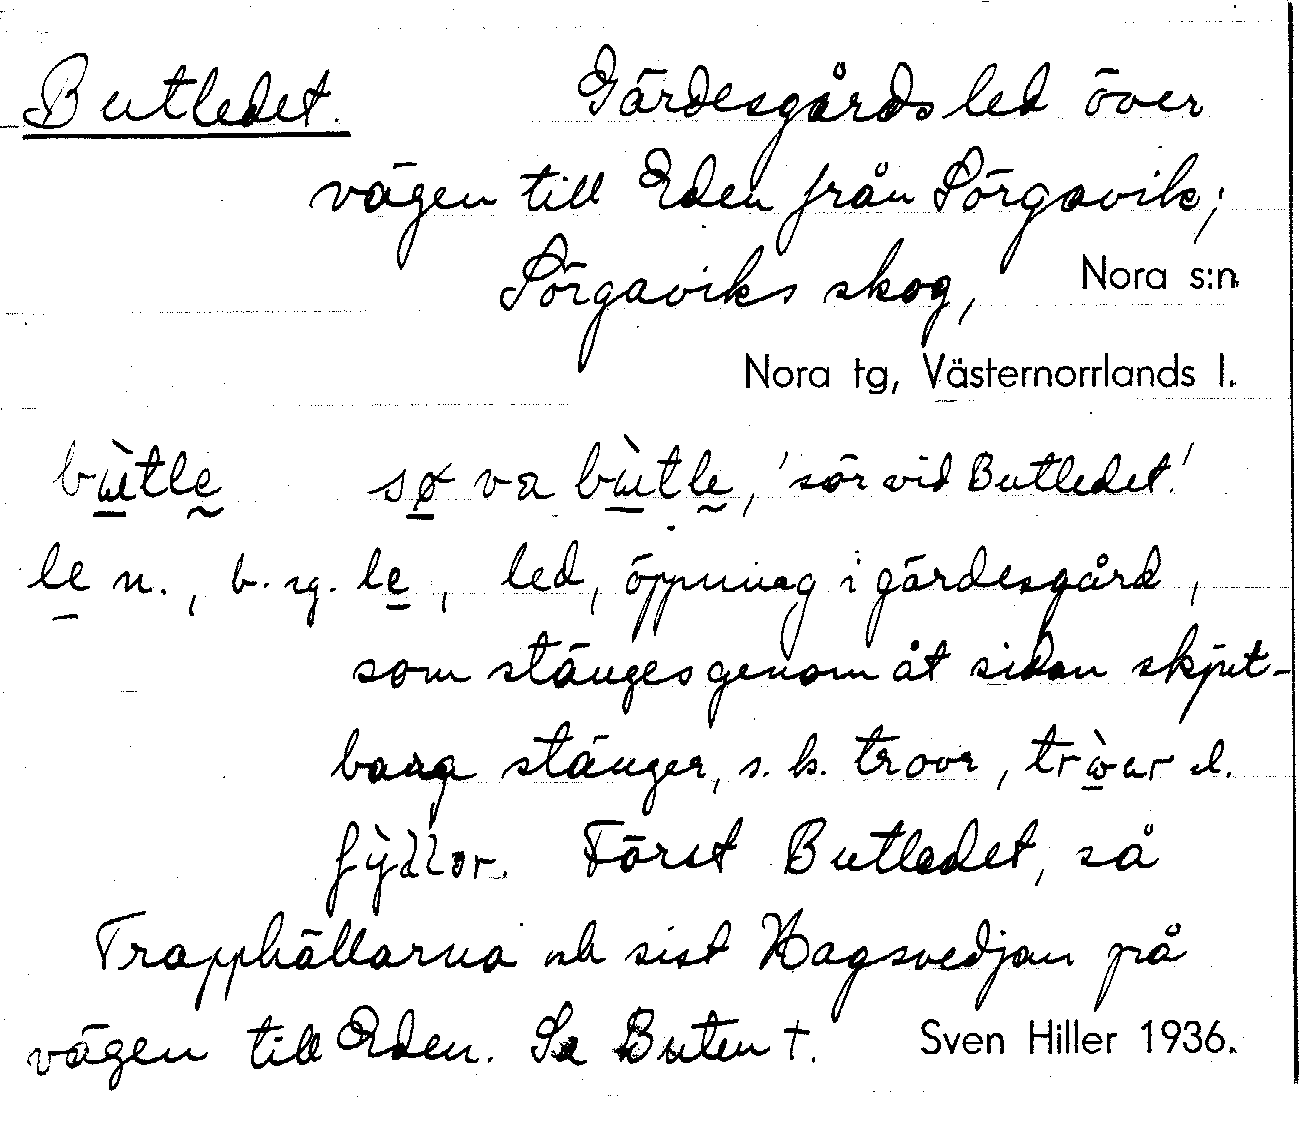 Butledet. Gärdesgårdsled över
vägen till Eden från Sörgavik;
Sörgaviks skog, Nora s:n
Nora tg, Västernorrlands l.
bùtle sø va bùtle, 'sör vid Butledet'
le n., b. sg. le, led, öppning i gärdesgård,
som stänges genom åt sidan skjut-
bara stänger, s. k. trovr, l.
Först Butledet, så
Trapphällarna och sist Hagsvedjan på
vägen till Eden. Se Buten †. Sven Hiller 1936.